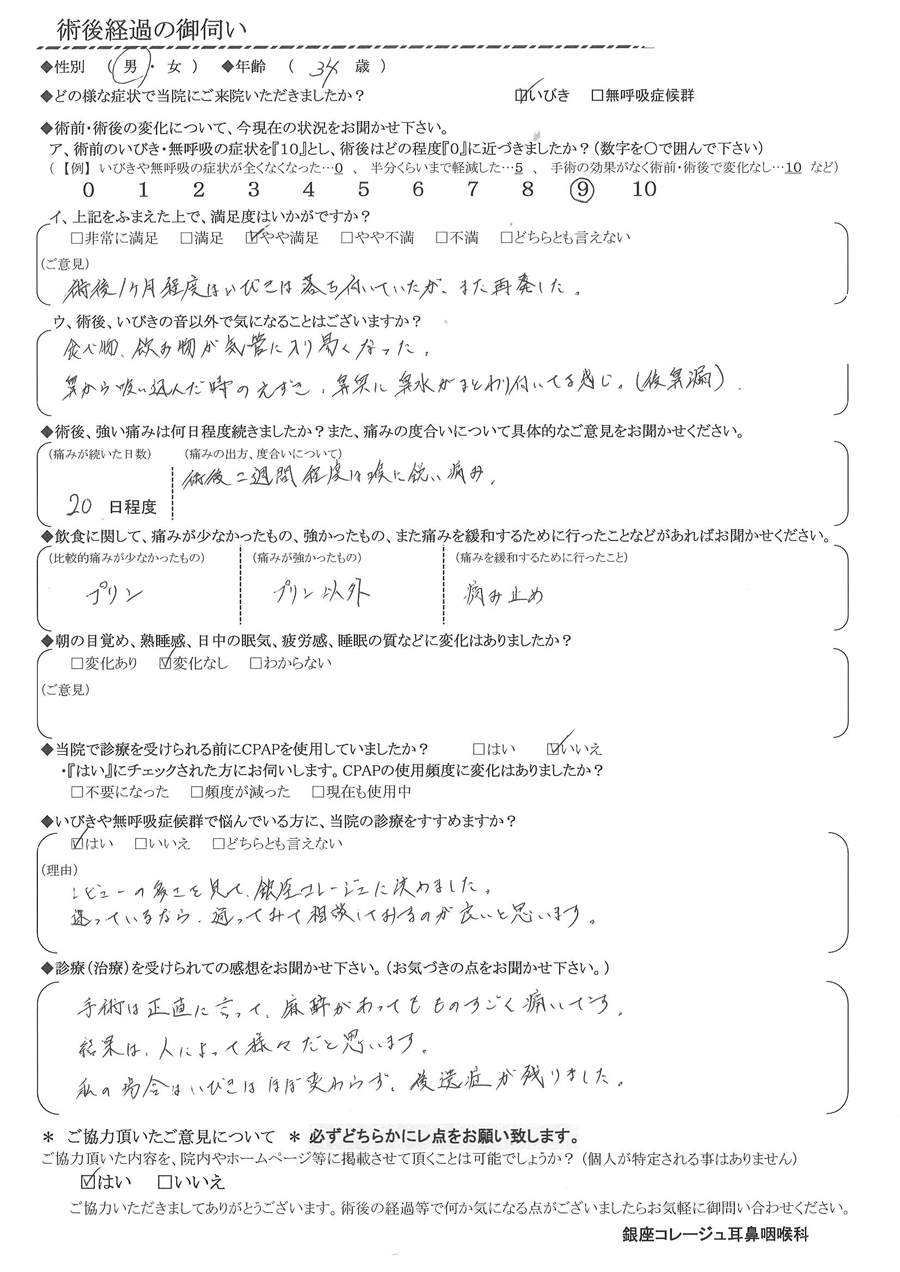 術後経過の御伺い
◆性別 （ 男 ・ 女 ） ◆年齢 （ 34 歳 ）
◆どの様な症状で当院にご来院いただきましたか？ ☑いびき □無呼吸症候群
◆術前・術後の変化について、今現在の状況をお聞かせ下さい。
ア、術前のいびき・無呼吸の症状を『10』とし、術後はどの程度『0』に近づきましたか？（数字を○で囲んで下さい）
（【例】 いびきや無呼吸の症状が全くなくなった…0 、 半分くらいまで軽減した…5 、 手術の効果がなく術前・術後で変化なし…10 など）
0 1 2 3 4 5 6 7 8 ⑨ 10
イ、上記をふまえた上で、満足度はいかがですか？
□非常に満足 □満足 ☑やや満足 □やや不満 □不満 □どちらとも言えない
（ご意見）
術後1ヶ月程度はいびきは落ち付いていたが、また再発した。
ウ、術後、いびきの音以外で気になることはございますか？
食べ物、飲み物が気管に入り易くなった。
鼻から吸い込んだ時のえずき、鼻奥に鼻水がまとわり付いてる感じ。（後鼻漏）.
◆術後、強い痛みは何日程度続きましたか？また、痛みの度合いについて具体的なご意見をお聞かせください。
（痛みが続いた日数） （痛みの出方、度合いについて）
術後二週間程度は喉に鋭い痛み。
20 日程度
◆飲食に関して、痛みが少なかったもの、強かったもの、また痛みを緩和するために行ったことなどがあればお聞かせください。
（比較的痛みが少なかったもの） （痛みが強かったもの） （痛みを緩和するために行ったこと）
プリン プリン以外 痛み止め
◆朝の目覚め、熟睡感、日中の眠気、疲労感、睡眠の質などに変化はありましたか？
□変化あり ☑変化なし □わからない
（ご意見）
◆当院で診療を受けられる前にCPAPを使用していましたか？ □はい ☑いいえ
・『はい』にチェックされた方にお伺いします。CPAPの使用頻度に変化はありましたか？
□不要になった □頻度が減った □現在も使用中
◆いびきや無呼吸症候群で悩んでいる方に、当院の診療をすすめますか？
☑はい □いいえ □どちらとも言えない
（理由）
レビューの多さを見て、銀座コレージュに決めました。
迷っているなら、通ってみて相談してみるのが良いと思います。
◆診療（治療）を受けられての感想をお聞かせ下さい。（お気づきの点をお聞かせ下さい。）
手術は正直に言って、麻酔があってもものすごく痛いです。
結果は、人によって様々だと思います。
私の場合はいびきはほぼ変わらず、後遺症が残りました。
＊ ご協力頂いたご意見について ＊ 必ずどちらかにレ点をお願い致します。
ご協力頂いた内容を、院内やホームページ等に掲載させて頂くことは可能でしょうか？（個人が特定される事はありません）
☑はい □いいえ
ご協力いただきましてありがとうございます。術後の経過等で何か気になる点がございましたらお気軽に御問い合わせください。
銀座コレージュ耳鼻咽喉科